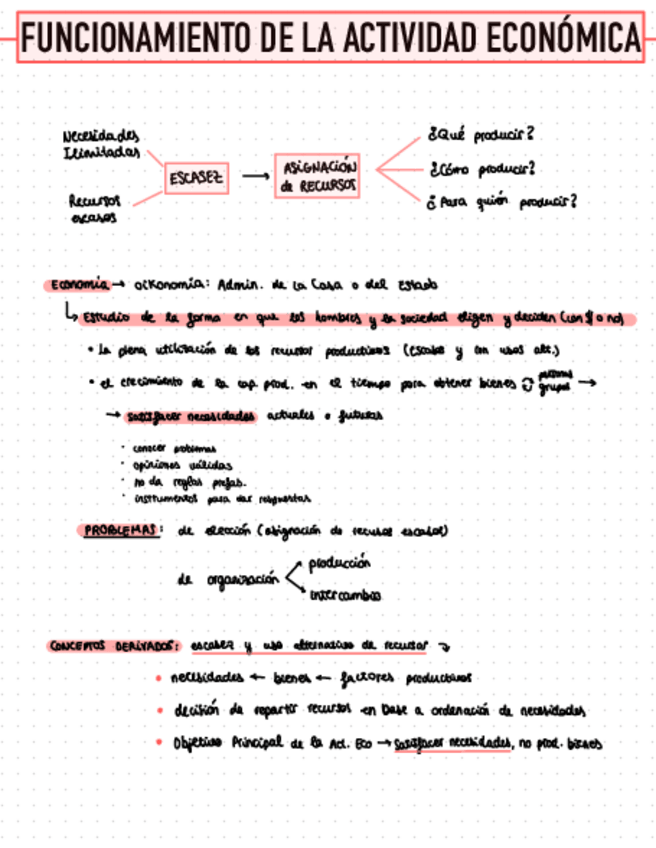 FUNCIONAMIENTO DE LA ACTIVIDAD ECONÓMICA
Necesidades
Ilimitadas
Recursos
escasos
ESCASEZ →
ASIGNACIÓN
de RECURSOS
¿Qué producir?
¿Cómo producir?
¿Para quién producir?
Economía → oikonomía: Admin. de la Casa o del Estado
Estudio de la forma en que los hombres y la sociedad eligen y deciden (con $ o no)
• La plena utilización de los recursos productivos (escasos y con usos alt.)
• el crecimiento de la cap. prod. en el tiempo para obtener bienes personas grupos →
→ satisfacer necesidades actuales o futuras
· conocer problemas
· opiniones válidas
· no da reglas prefas.
· instrumentos para dar respuestas
PROBLEMAS: de elección (asignación de recursos escasos)
de organización
producción
intercambio
CONCEPTOS DERIVADOS: escasez y uso alternativo de recursos
• necesidades ← bienes ← factores productivos
• decisión de repartir recursos en base a ordenación de necesidades
• Objetivo Principal de la Act. Eco → Satisfacer necesidades, no prod. bienes